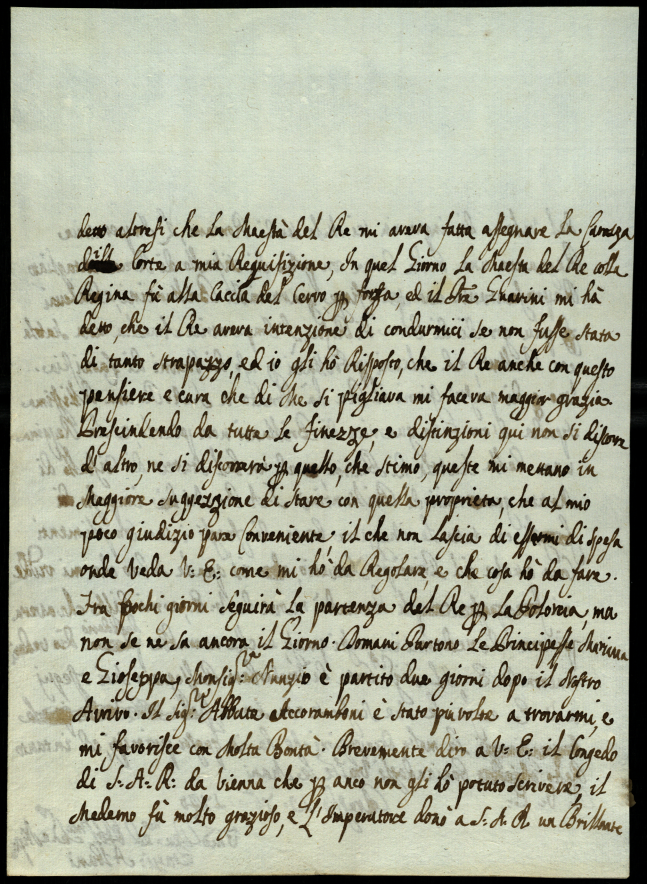 detto altresi che la Maestà del Re mi aveva fatta assegnare la Carozza
della Corte a mia Requisizione, In quel Giorno la Maestà del Re colla
Regina fù alla Caccia del Cervo p forza, ed il Pre Guarini mi hà
detto, che il Re aveva intenzione di condurmici se non fusse stata
di tanto strapazzo, ed io gli hò Risposto, che il Re anche con questo
pensiere e cura che di Me si pigliava mi faceva maggior grazia.
Prescindendo da tutte le finezze, e distinzioni qui non si discorre
d'altro, ne si discorrerà p quello, che stimo, queste mi mettano in
Maggiore suggezzione di stare con quella proprietà, che al mio
poco giudizio pare Conveniente, il che non lascia di essermi di spesa
onde veda V: E: come mi hò da Regolare, e che cosa hò da fare.
Frà pochi giorni seguirà la partenza del Re p la Polonia, ma
non se ne sa ancora il Giorno. Domani Partono le Principesse Marianna
e Gioseppa, Monsig:re Nunzio è partito due giorni dopo il Nostro
Arrivo. Il Sig:re Abbate Accoramboni è stato più volte a trovarmi, e
mi favorisce con Molta Bontà. Brevemente dirò a V: E: il Congedo
di S: A: R: da Vienna che p anco non gli hò potuto scrivere, il
Medemo fù molto grazioso, e l'Imperatore donò a S: A: R un Brillante